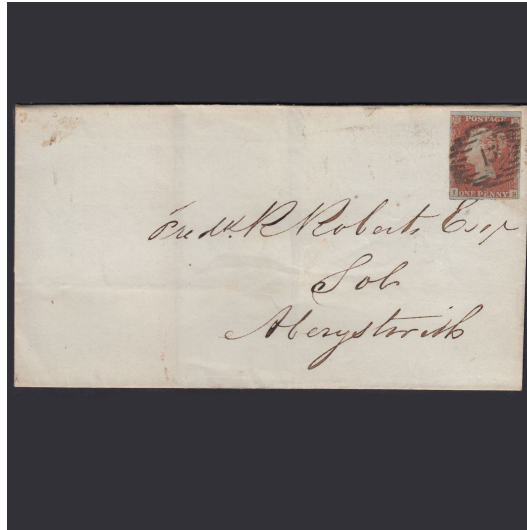 POSTAGE
ONE PENNY
Fredk. R Roberts Esqr
Solr
Aberystwith